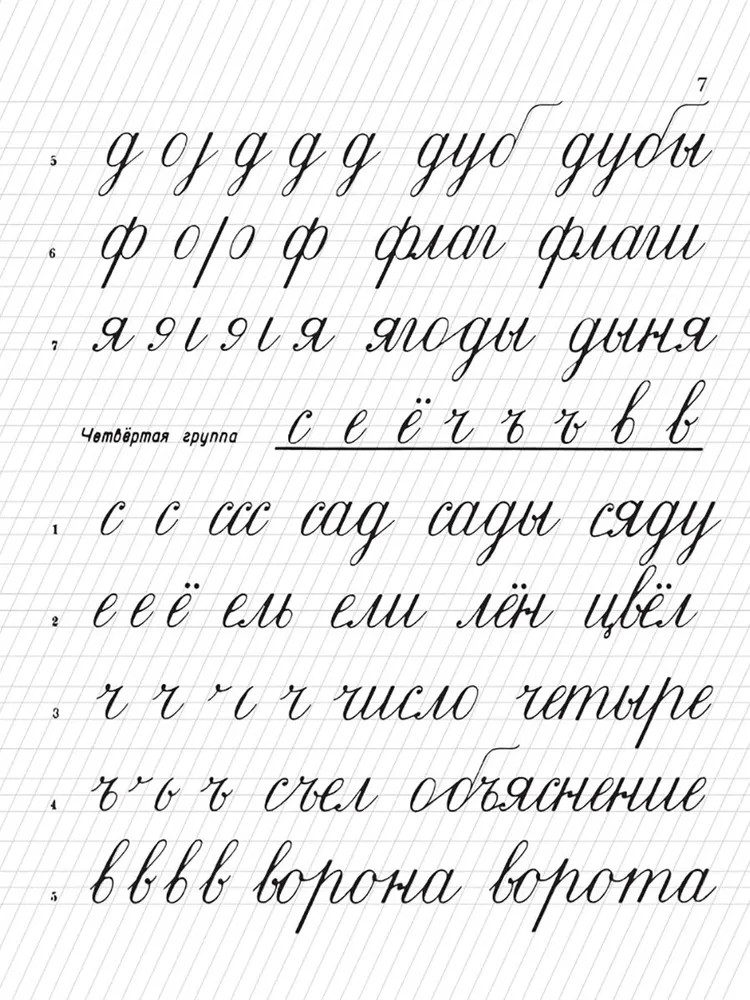 7
5 д о ȷ д д д дуб дубы
6 ф о ı о ф флаг флаги
7 я э ι э ι я ягоды дыня
Четвёртая группа с е ё ч ъ ъ в в
1 с с ссс сад сады сяду
2 е е ё ель ели лён цвёл
3 ч ч ˇ ι ч число четыре
4 ъ ˇ ь ъ съел объяснение
5 в в в в ворона ворота